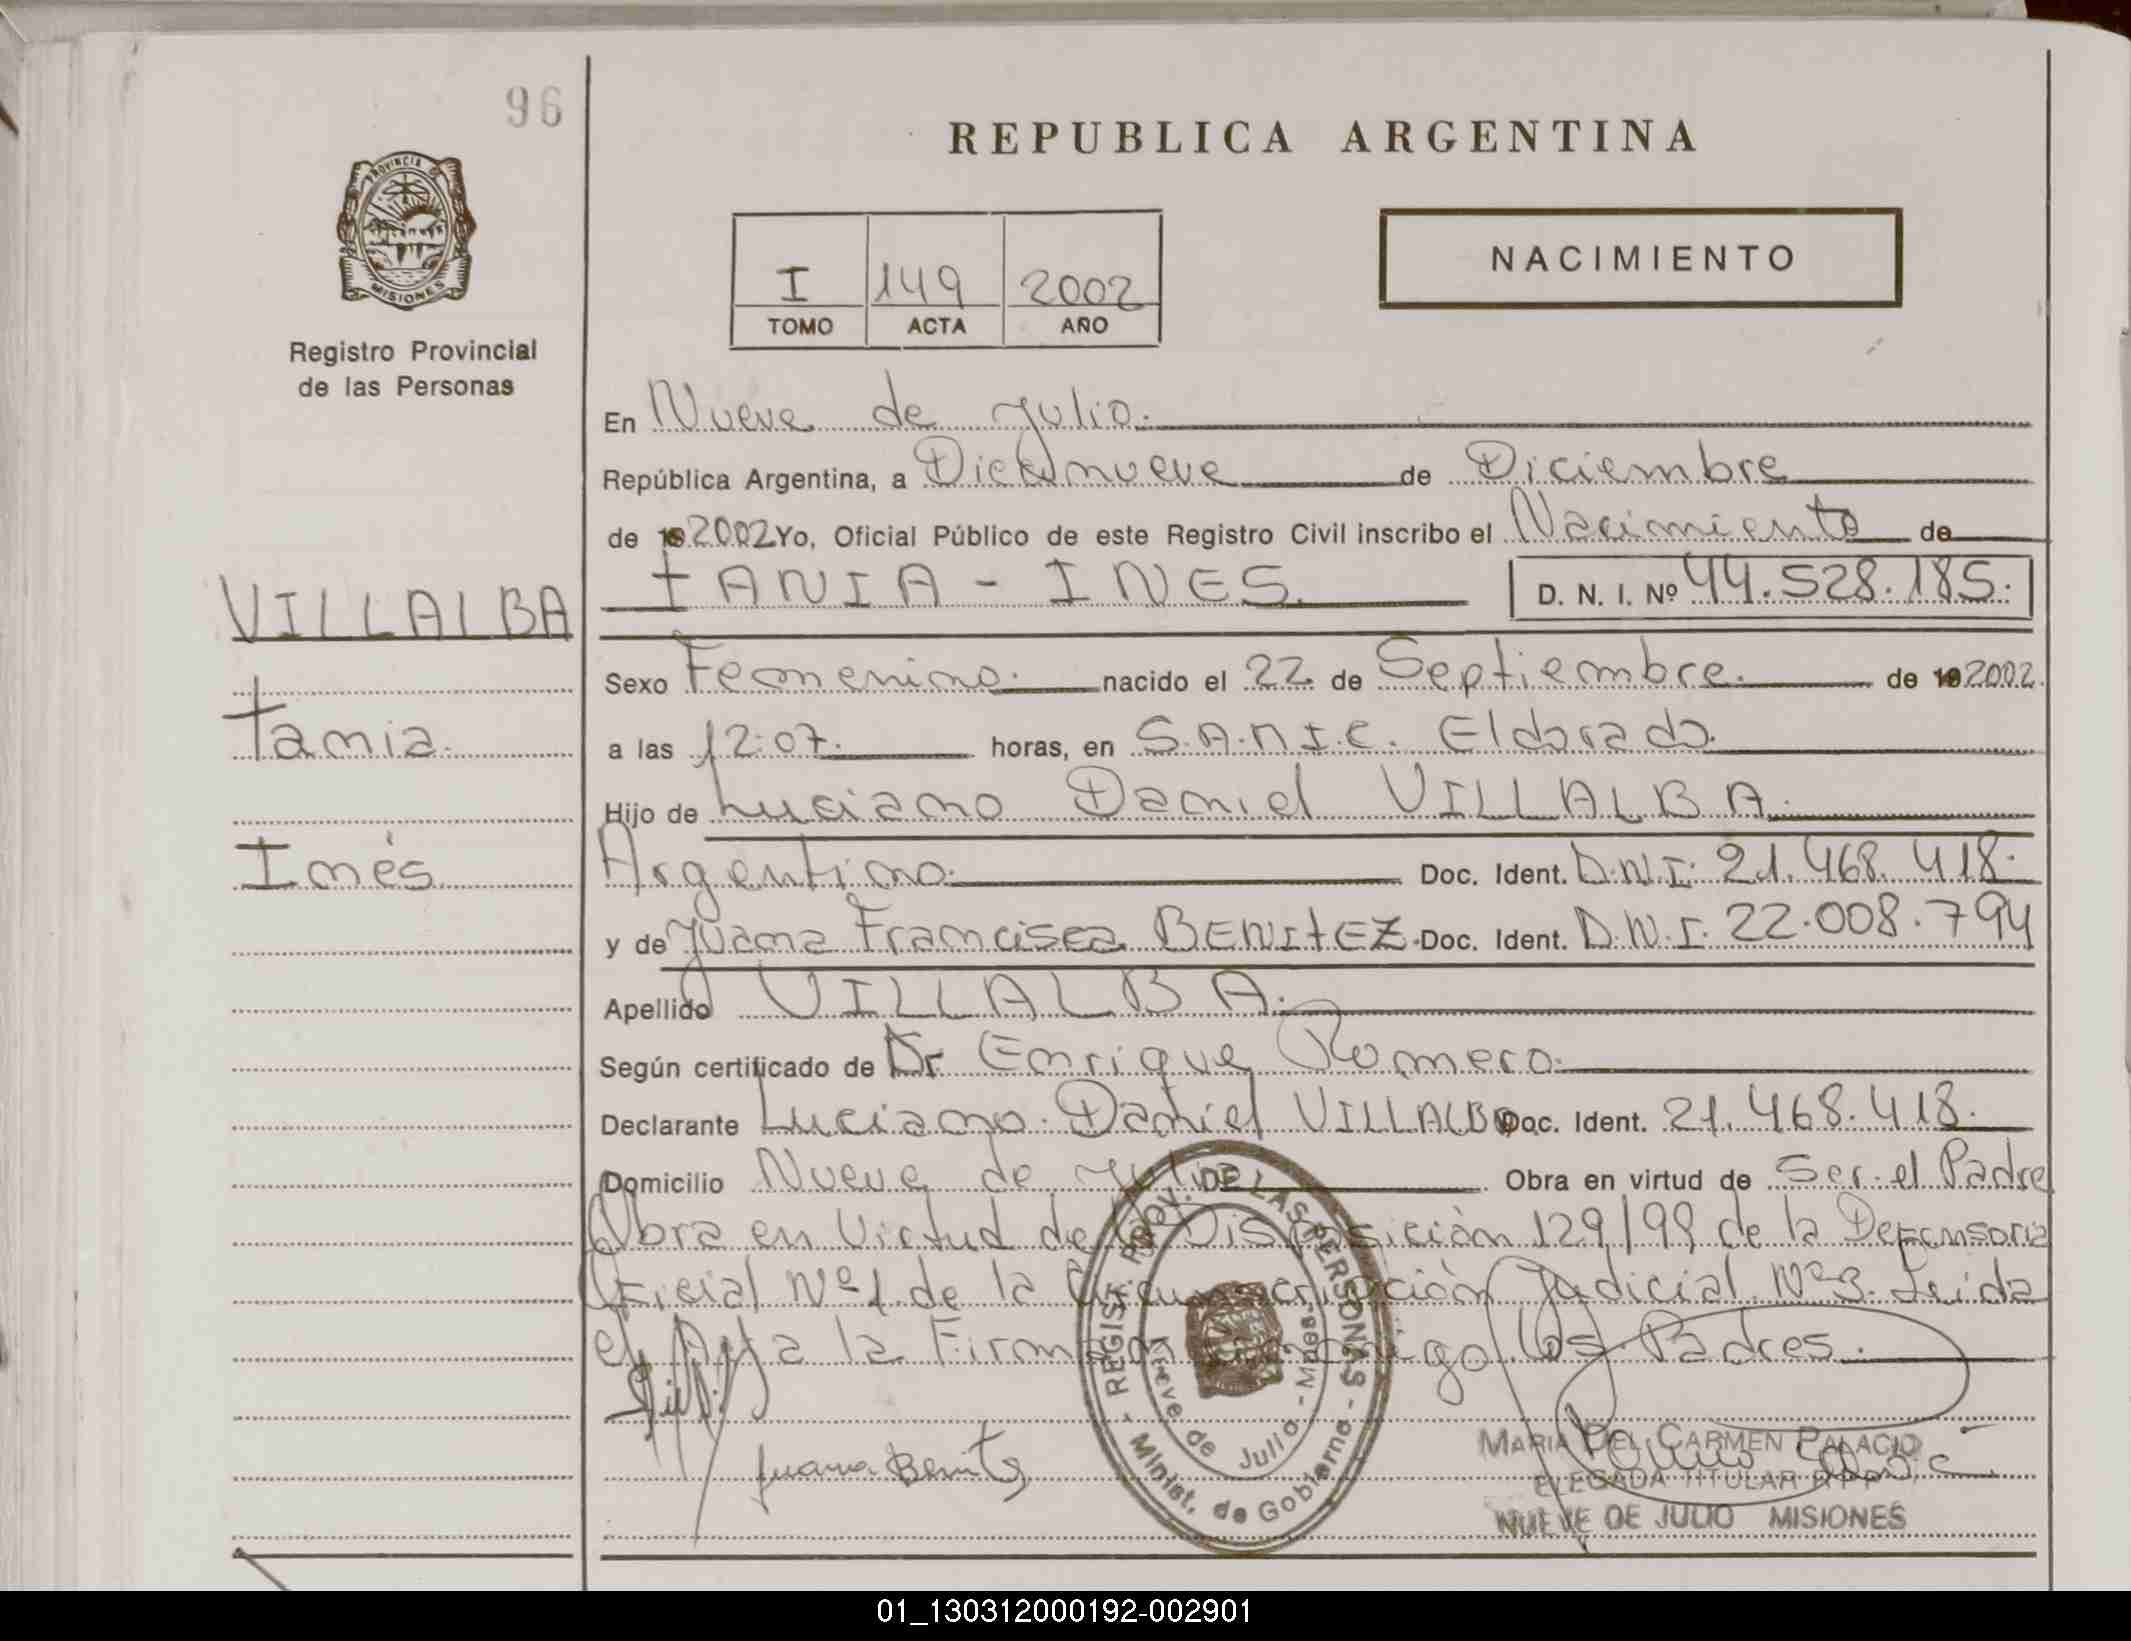 96
REPUBLICA ARGENTINA
PROVINCIA
MISIONES
NACIMIENTO
I 149 2002
TOMO ACTA AÑO
Registro Provincial
de las Personas
En Nueve de Julio.
República Argentina, a Diecinueve de Diciembre
de 2002 Yo, Oficial Público de este Registro Civil inscribo el Nacimiento de
TANIA - INES. D. N. I. Nº 44.528.185.
VILLALBA
Sexo Femenino. nacido el 22 de Septiembre. de 19 2002
Tania
a las 12:07. horas, en S.A.M.I.C. Eldorado.
Hijo de Luciano Daniel VILLALBA.
Inés
Argentino. Doc. Ident. D.N.I. 21.468.418.
y de Juana Francisca BENITEZ. Doc. Ident. D.N.I. 22.008.794
Apellido VILLALBA.
Según certificado de Dr. Enrique Romero.
Declarante Luciano Daniel VILLALBA Doc. Ident. 21.468.418.
Domicilio Nueve de Julio Obra en virtud de Ser el Padre
Obra en Virtud de la Disposición 129/99 de la Defensoria
Oficial Nº 1 de la Circunscripción Judicial Nº 3. Leida
el Acta la Firman conmigo los Padres.
Juana Benitez
REGIST. PROV. DE LAS PERSONAS
Minist. de Gobierno
Nueve de Julio - Mnes.
MARIA DEL CARMEN PALACIO
ELEGADA TITULAR R P P
NUEVE DE JULIO MISIONES
01_130312000192-002901